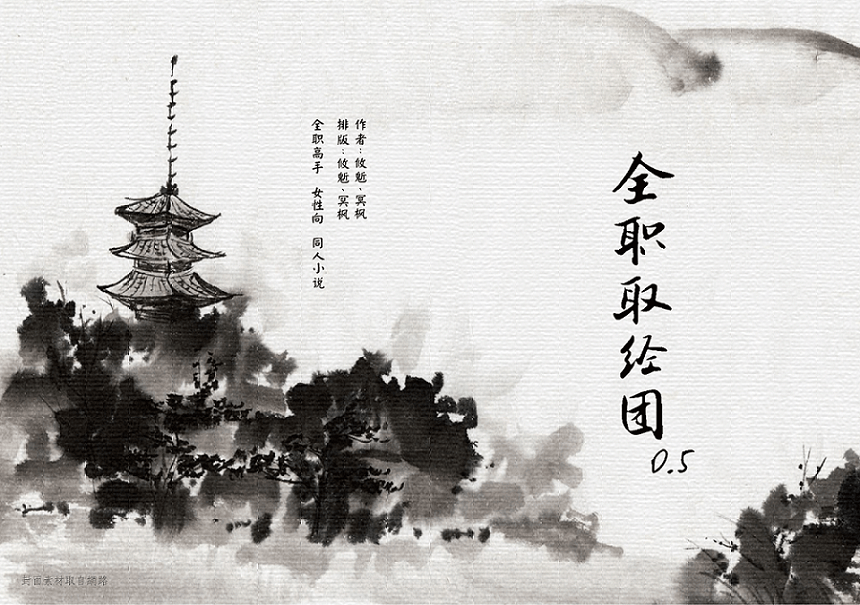 全职取经团
0.5
作者：攸魁、冥枫
排版：攸魁、冥枫
全职高手 女性向 同人小说
封面素材取自網路